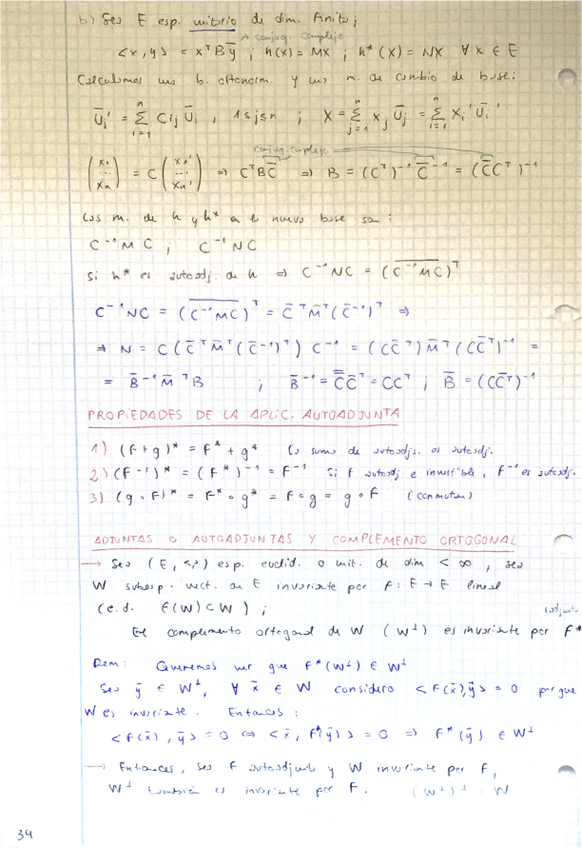 b) Sea E esp. unitario de dim. finita;
conjug. complejo
<x,y> = xᵀBȳ ; h(x) = MX ; h*(X) = NX ∀ x ∈ E
Calculamos una b. ortonorm. y una m. de cambio de base:
ū_i' = Σ_{i=1}^n Cij ū_i , 1≤j≤n ; X = Σ_{j=1}^n x_j ū_j = Σ_{i=1}^n x_i' ū_i'
conjug. complejo
(x₁ ... xn) = C (x₁' ... xn') ⇒ CᵀBC̄ ⇒ B = (Cᵀ)⁻¹ C̄⁻¹ = (C̄Cᵀ)⁻¹
Las m. de h y h* en la nueva base son:
C⁻¹MC ; C⁻¹NC
Si h* es autoadj. de h ⇒ C⁻¹NC = (\overline{C⁻¹MC})ᵀ
C⁻¹NC = (\overline{C⁻¹MC})ᵀ = C̄ᵀM̄ᵀ(C̄⁻¹)ᵀ ⇒
⇒ N = C(C̄ᵀM̄ᵀ(C̄⁻¹)ᵀ) C⁻¹ = (CC̄ᵀ)M̄ᵀ(CC̄ᵀ)⁻¹ =
= B̄⁻¹M̄ᵀB ; B̄⁻¹ = \overline{C̄}C̄ᵀ = CCᵀ ; B̄ = (CC̄ᵀ)⁻¹
PROPIEDADES DE LA APLIC. AUTOADJUNTA
1) (f+g)* = f* + g* La suma de autoadjs. es autoadj.
2) (f⁻¹)* = (f*)⁻¹ = f⁻¹ Si f autoadj e invertible, f⁻¹ es autoadj.
3) (g∘f)* = f*∘g* = f∘g = g∘f (conmutan)
ADJUNTAS O AUTOADJUNTAS Y COMPLEMENTO ORTOGONAL
→ Sea (E, <,>) esp. euclid. o unit. de dim < ∞, sea
W subesp. vect. de E invariante por f: E→E lineal
(e.d. f(W)⊂W) ;
(adjunta
El complemento ortogonal de W (W⊥) es invariante por f*
Dem: Queremos ver que f*(W⊥) ∈ W⊥
Sea ȳ ∈ W⊥, ∀ x̄ ∈ W considero <f(x̄),ȳ> = 0 porque
W es invariante. Entonces:
<f(x̄), ȳ> = 0 ⇔ <x̄, f*(ȳ)> = 0 ⇒ f*(ȳ) ∈ W⊥
→ Entonces, sea f autoadjunta y W invariante por f,
W⊥ también es invariante por f. (W⊥)⊥ = W
34